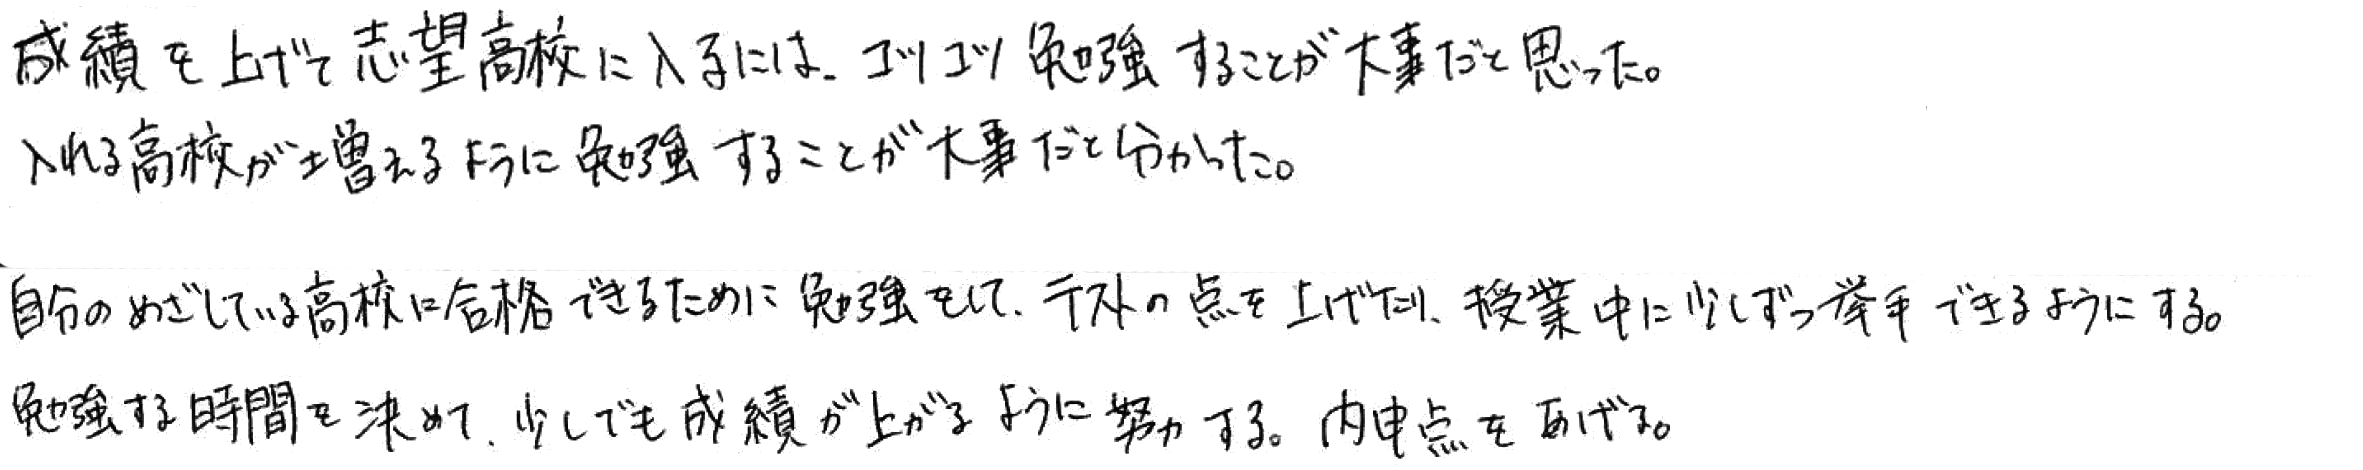 成績を上げて志望高校に入るには、コツコツ勉強することが大事だと思った。
入れる高校が増えるように勉強することが大事だと分かった。
自分のめざしている高校に合格できるために勉強をして、テストの点を上げたり、授業中に少しずつ挙手できるようにする。
勉強する時間を決めて、少しでも成績が上がるように努力する。内申点をあげる。